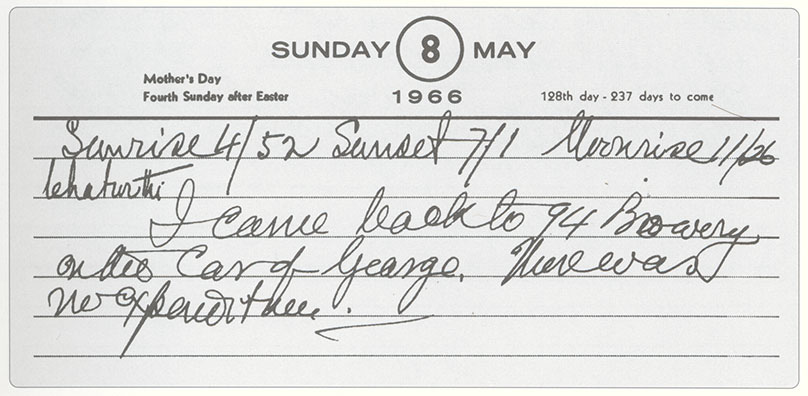 SUNDAY 8 MAY
Mother's Day
Fourth Sunday after Easter
1966
128th day - 237 days to come
Sunrise 4/52 Sunset 7/1 Moonrise 11/26
Chaturthi
I came back to 94 Bowery
on the Car of George. There was
no expenditure.